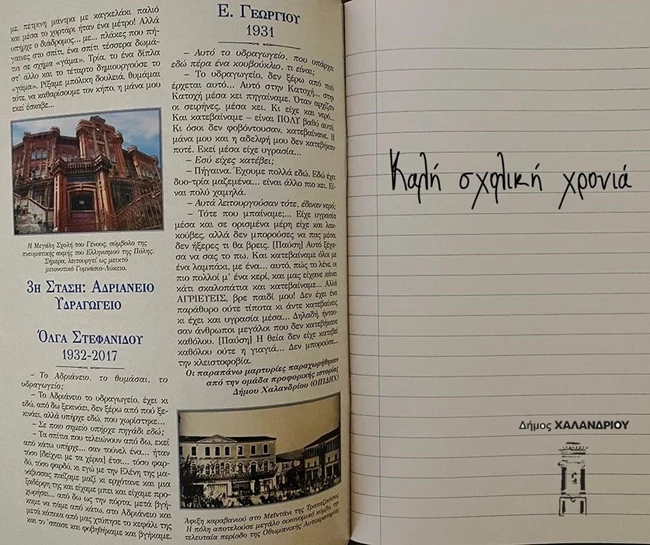 με, πέτρινη μάντρα με καγκελάκι παλιό
και μέσα το χορτάρι ήταν ένα μέτρο! Αλλά
υπήρχε ο διάδρομος... με... πλάκες που πή-
γαινες στο σπίτι, ένα σπίτι τέσσερα δωμά-
τια σε σχήμα «γάμα». Τρία, το ένα δίπλα
στ' άλλο και το τέταρτο δημιουργούσε το
«γάμα». Ρίξαμε μπόλικη δουλειά, θυμάμαι
τότε, να καθαρίσουμε τον κήπο, η μάνα μου
εκεί έσκαβε...
Η Μεγάλη Σχολή του Γένους, σύμβολο της
πνευματικής ακμής του Ελληνισμού της Πόλης.
Σήμερα, λειτουργεί ως μεικτό
μειονοτικό Γυμνάσιο-Λύκειο.
3η Στάση: Αδριάνειο
Υδραγωγείο
Όλγα Στεφανίδου
1932-2017
– Το Αδριάνειο, το θυμάσαι, το
υδραγωγείο;
– Το Αδριάνειο το υδραγωγείο, έχει κι
εδώ, από δω ξεκινάει, δεν ξέρω από πού ξε-
κινάει, αλλά υπήρχε εδώ, που χωρίστηκε...
– Σε ποιο σημείο υπήρχε πηγάδι εδώ;
– Τα σπίτια που τελειώνουν από δω, εκεί
από κάτω υπήρχε... σαν τούνελ ένα... ήταν
τόσο [δείχνει με τα χέρια] έτσι... τόσο φαρ-
δύ, τόσο φαρδύ, κι εγώ με την Ελένη της μα-
νάβισσας παίζαμε μαζί κι ερχότανε και μια
ξαδέρφη της και είχαμε μπει και είχαμε προ-
χωρήσει... από δω ως την πόρτα, μετά βγή-
καμε να πάμε από κάτω, στο Αδριάνειο και
μετά κάποια από μας χτύπησε το κεφάλι της
και το 'σπασε και φοβηθήκαμε και βγήκαμε.
Ε. Γεωργίου
1931
– Αυτό το υδραγωγείο, που υπάρχει
εδώ πέρα ένα κουβούκλιο, τι είναι;
– Το υδραγωγείο, δεν ξέρω από πού
έρχεται αυτό... Αυτό στην Κατοχή... στην
Κατοχή μέσα κει πηγαίναμε. Όταν αρχίζαν
οι σειρήνες, μέσα κει. Κι είχε και νερό...
Και κατεβαίναμε – είναι ΠΟΛΥ βαθύ αυτό.
Κι όσοι δεν φοβόντουσαν, κατεβαίνανε. Η
μάνα μου και η αδελφή μου δεν κατεβήκαν
ποτέ. Εκεί μέσα είχε υγρασία...
– Εσύ είχες κατέβει;
– Πήγαινα. Έχουμε πολλά εδώ. Εδώ έχει
δυο-τρία μαζεμένα... είναι άλλο πιο κει. Εί-
ναι πολύ χαμηλά.
– Αυτά λειτουργούσαν τότε, έδιναν νερό;
– Τότε που μπαίναμε;... Είχε υγρασία
μέσα και σε ορισμένα μέρη είχε και λακ-
κούβες, αλλά δεν μπορούσες να πας μέσα,
δεν ήξερες τι θα βρεις. [Παύση] Αυτό ξέχα-
σα να σας το πω. Και κατεβαίναμε όλοι με
ένα λαμπάκι, με ένα... αυτό, πώς το λένε, οι
πιο πολλοί μ' ένα κερί, και μας είχανε κάνει
κάτι σκαλοπάτια και κατεβαίναμε... Αλλά
ΑΓΡΙΕΥΕΙΣ, βρε παιδί μου! Δεν έχει ένα
παράθυρο ούτε τίποτα κι άντε κατεβαίνεις
κι έχει και υγρασία μέσα... Δηλαδή, ήντου-
σαν άνθρωποι μεγάλοι που δεν κατεβήκανε
καθόλου. [Παύση] Η θεία δεν είχε κατεβεί
καθόλου ούτε η γιαγιά... Δεν μπορούσε...
την κλειστοφοβία.
Οι παραπάνω μαρτυρίες παραχωρήθηκαν
από την ομάδα προφορικής ιστορίας
Δήμου Χαλανδρίου (ΟΠΙΔΗΧ)
Άφιξη καραβανιού στο Μεϊντάνι της Τραπεζούντας.
Η πόλη αποτελούσε μεγάλο οικονομικό κόμβο, τη
τελευταία περίοδο της Οθωμανικής Αυτοκρατορίας
Καλή σχολική χρονιά
Δήμος ΧΑΛΑΝΔΡΙΟΥ